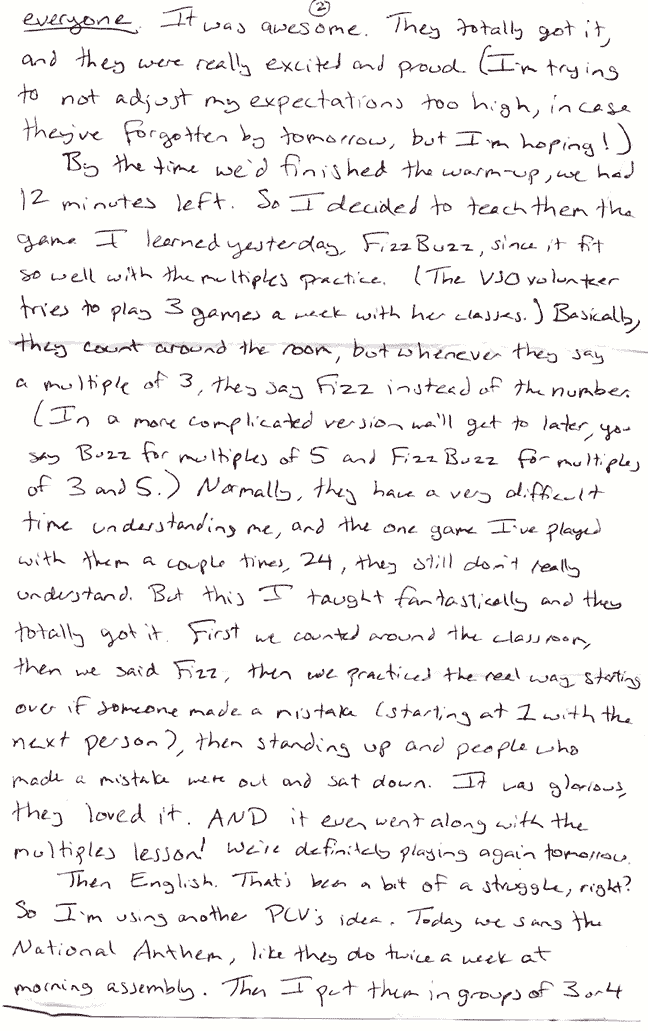 ②
everyone. It was awesome. They totally got it,
and they were really excited and proud. (I'm trying
to not adjust my expectations too high, in case
they've forgotten by tomorrow, but I'm hoping!)
By the time we'd finished the warm-up, we had
12 minutes left. So I decided to teach them the
game I learned yesterday, FizzBuzz, since it fit
so well with the multiples practice. (The VSO volunteer
tries to play 3 games a week with her classes.) Basically,
they count around the room, but whenever they say
a multiple of 3, they say Fizz instead of the number.
(In a more complicated version we'll get to later, you
say Buzz for multiples of 5 and FizzBuzz for multiples
of 3 and 5.) Normally, they have a very difficult
time understanding me, and the one game I've played
with them a couple times, 24, they still don't really
understand. But this I taught fantastically and they
totally got it. First we counted around the classroom,
then we said Fizz, then we practiced the real way starting
over if someone made a mistake (starting at 1 with the
next person), then standing up and people who
made a mistake were out and sat down. It was glorious,
they loved it. AND it even went along with the
multiples lesson! We're definitely playing again tomorrow.
Then English. That's been a bit of a struggle, right?
So I'm using another PCV's idea. Today we sang the
National Anthem, like they do twice a week at
morning assembly. Then I put them in groups of 3 or 4